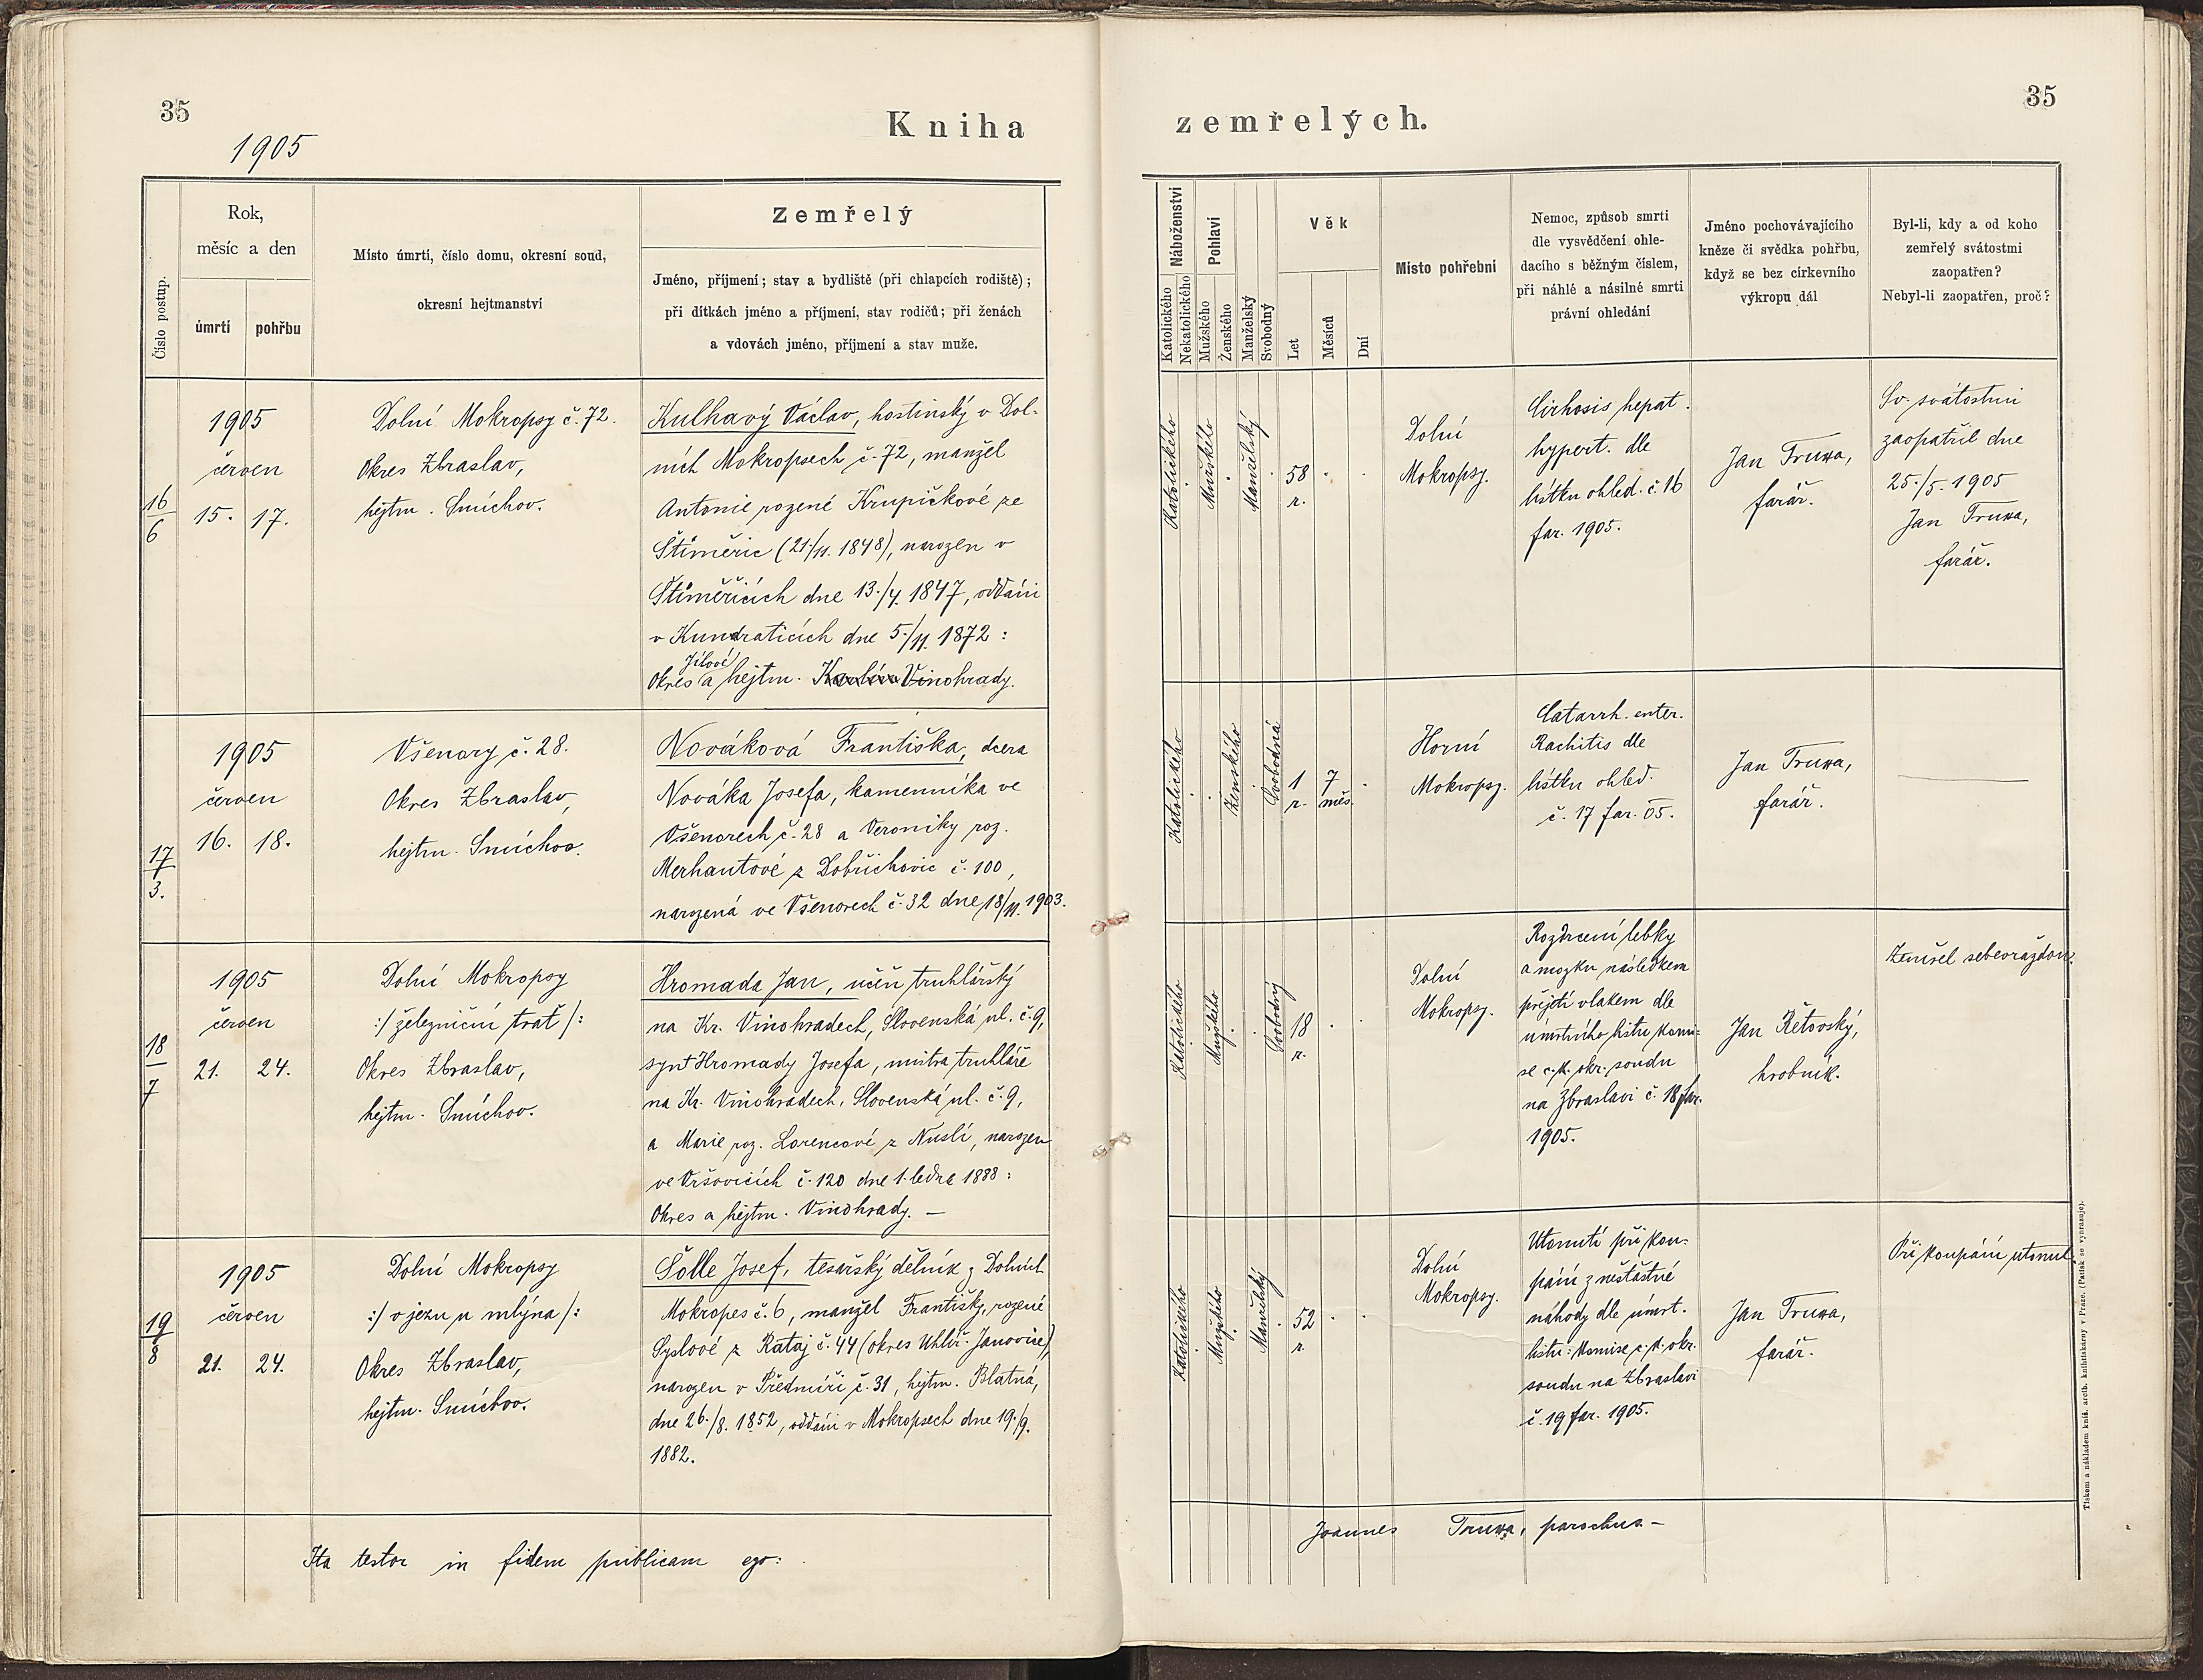 35
1905
Kniha
Číslo postup.
Rok,
měsíc a den
úmrtí
pohřbu
Místo úmrtí, číslo domu, okresní soud,
okresní hejtmanství
Zemřelý
Jméno, příjmení; stav a bydliště (při chlapcích rodiště);
při dítkách jméno a příjmení, stav rodičů; při ženách
a vdovách jméno, příjmení a stav muže.
16
6
1905
červen
15. 17.
Dolní Mokropsy č. 72.
Okres Zbraslav,
hejtm. Smíchov.
Kulhavý Václav, hostinský v Dol-
ních Mokropsech č. 72, manžel
Antonie rozené Krupičkové ze
Štiměřic (21./11. 1848), narozen v
Štiměřicích dne 13./4. 1847, oddáni
v Kundraticích dne 5./11. 1872:
Jílové
Okres a hejtm. Karlín Vinohrady.
17
3.
1905
červen
16. 18.
Všenory č. 28.
Okres Zbraslav,
hejtm. Smíchov.
Nováková Františka, dcera
Nováka Josefa, kamenníka ve
Všenorech č. 28 a Veroniky roz.
Merhautové z Dobřichovic č. 100,
narozená ve Všenorech č. 32 dne 18/11. 1903.
18
7
1905
červen
21. 24.
Dolní Mokropsy
:/ železniční trať /:
Okres Zbraslav,
hejtm. Smíchov.
Hromada Jan, učeň truhlářský
na Kr. Vinohradech, Slovenská ul. č. 9,
syn Hromady Josefa, mistra truhláře
na Kr. Vinohradech, Slovenská ul. č. 9,
a Marie roz. Lorencové z Nuslí, narozen
ve Vršovicích č. 120 dne 1. ledna 1888:
Okres a hejtm. Vinohrady. —
19
8
1905
červen
21. 24.
Dolní Mokropsy
:/ v jezu u mlýna /:
Okres Zbraslav,
hejtm. Smíchov.
Šolle Josef, tesařský dělník z Dolních
Mokropes č. 6, manžel Františky, rozené
Syslové z Rataj č. 44 (okres Uhlíř. Janovice),
narozen v Předmíři č. 31, hejtm. Blatná,
dne 26./8. 1852, oddáni v Mokropsech dne 19./9.
1882.
Ita testor in fidem publicam ego:
35
zemřelých.
Náboženství
Katolického
Nekatolického
Pohlaví
Mužského
Ženského
Manželský
Svobodný
Věk
Let
Měsíců
Dní
Místo pohřební
Nemoc, způsob smrti
dle vysvědčení ohle-
dacího s běžným číslem,
při náhlé a násilné smrti
právní ohledání
Jméno pochovávajícího
kněze či svědka pohřbu,
když se bez církevního
výkropu dál
Byl-li, kdy a od koho
zemřelý svátostmi
zaopatřen?
Nebyl-li zaopatřen, proč?
Katolického
Mužského
Manželský
58
r.
Dolní
Mokropsy.
Cirhosis hepat.
hypert. dle
lístku ohled. č. 16
far. 1905.
Jan Truxa,
farář.
Sv. svátostmi
zaopatřil dne
25./5. 1905
Jan Truxa,
farář.
Katolického
Ženského
Svobodná
1
r.
7
měs.
Horní
Mokropsy.
Catarrh. enter.
Rachitis dle
lístku ohled.
č. 17 far. 05.
Jan Truxa,
farář.
Katolického
Mužského
Svobodný
18
r.
Dolní
Mokropsy.
Rozdrcení lebky
a mozku následkem
přejetí vlakem dle
úmrtního listu komi-
se c. k. okr. soudu
na Zbraslavi č. 18 far.
1905.
Jan Řetovský,
hrobník.
Zemřel sebevraždou.
Katolického
Mužského
Manželský
52
r.
Dolní
Mokropsy.
Utonutí při kou-
pání z nešťastné
náhody dle úmrt.
listu: Komise c. k. okr.
soudu na Zbraslavi
č. 19 far. 1905.
Jan Truxa,
farář.
Při koupání utonul.
Joannes Truxa, parochus —
Tiskem a nákladem kníž. arcib. knihtiskárny v Praze. (Patisk se vyhrazuje).